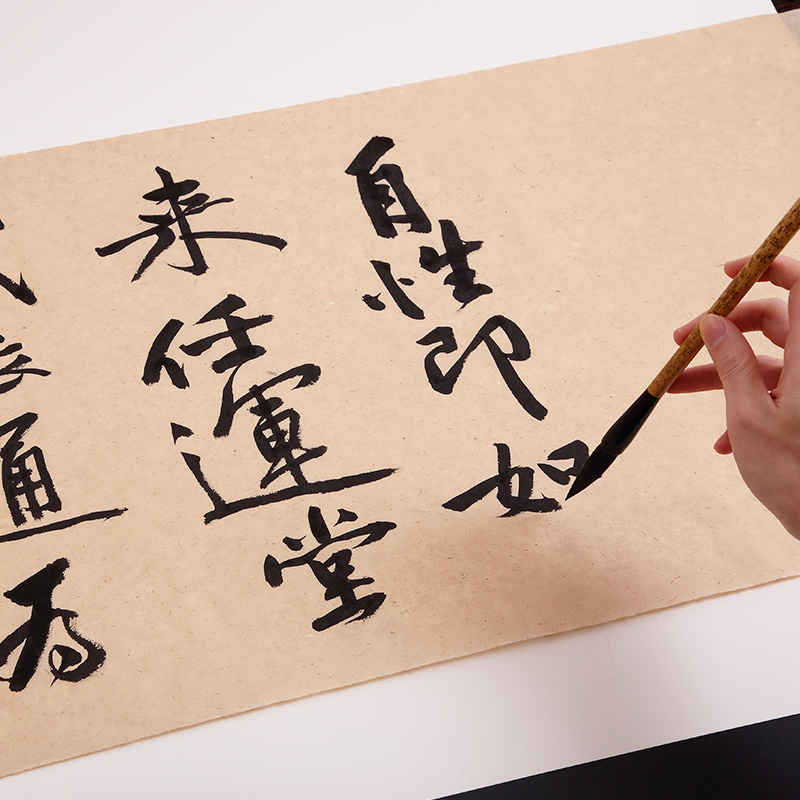 自性即如
来任運堂
通為